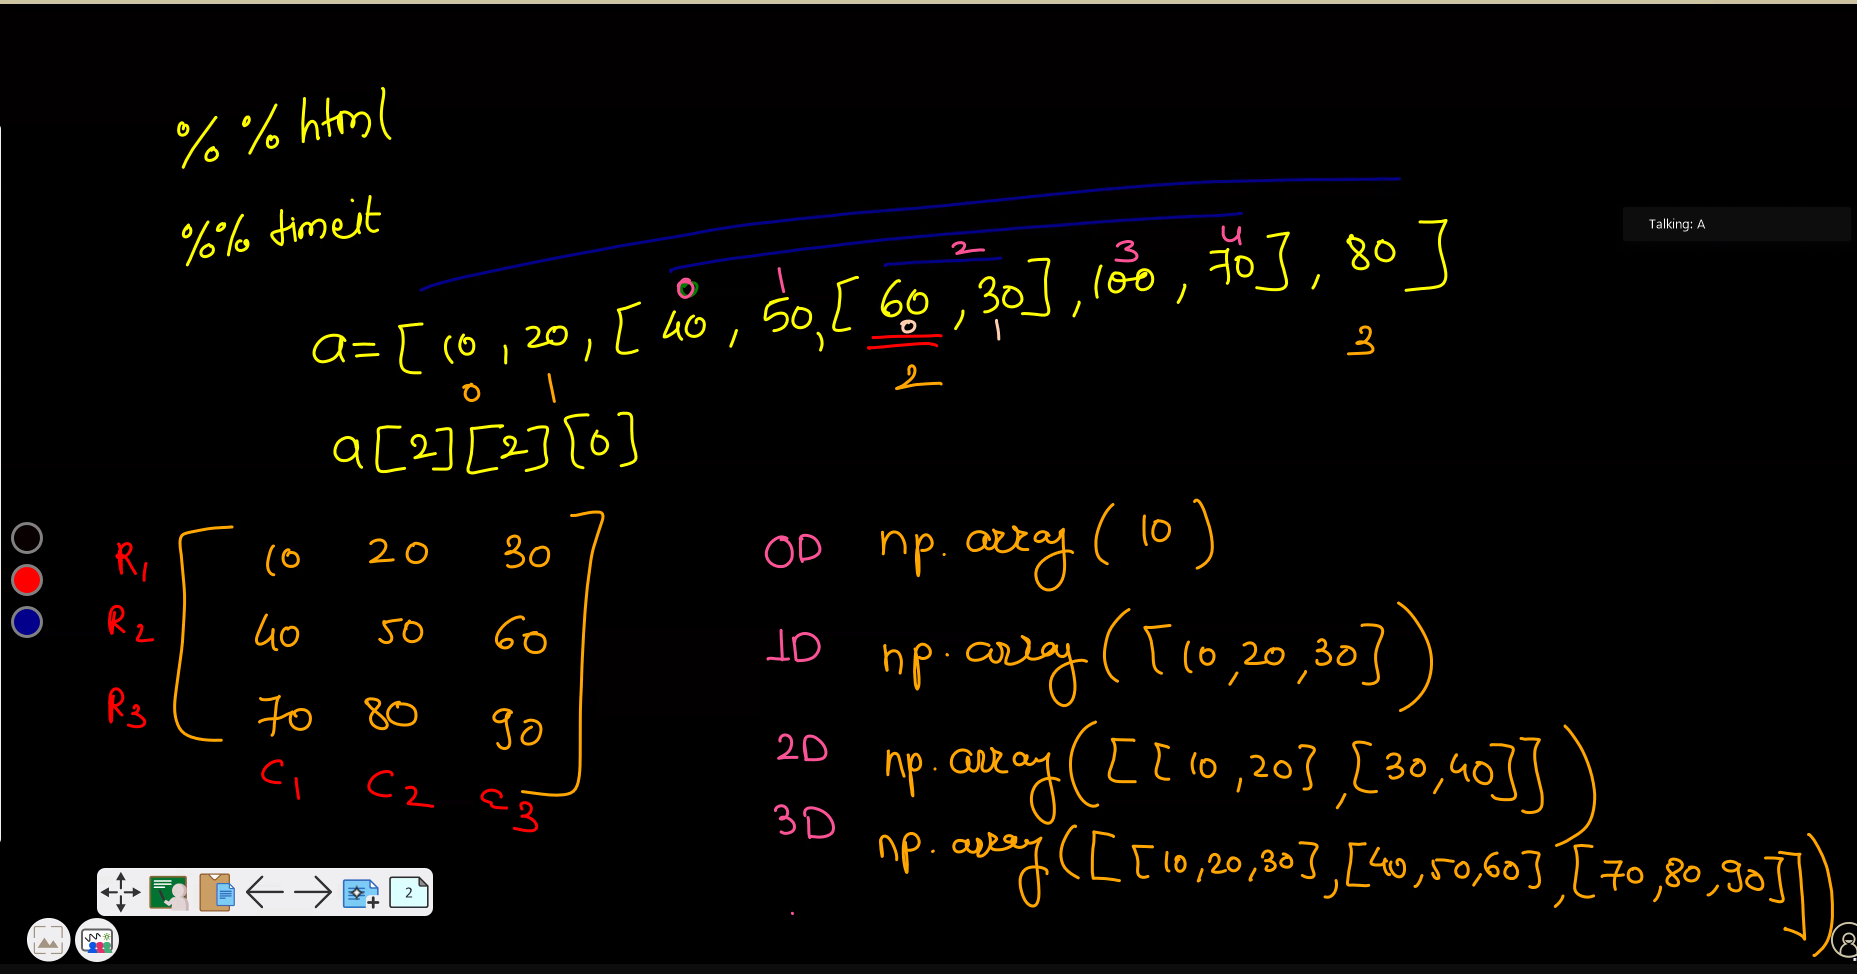 %% html
%% timeit
Talking: A
2 3 4
0 1
a=[10,20,[40,50,[60,30],100,70],80]
0 1
0 1 2 3
a[2][2][0]
R1 10 20 30
R2 40 50 60
R3 70 80 90
C1 C2 C3
0D np.array(10)
1D np.array([10,20,30])
2D np.array([[10,20],[30,40]])
3D np.array([[10,20,30],[40,50,60],[70,80,90]])
2